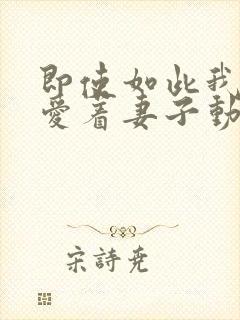 即使如此我
愛着妻子動
宋詩尭